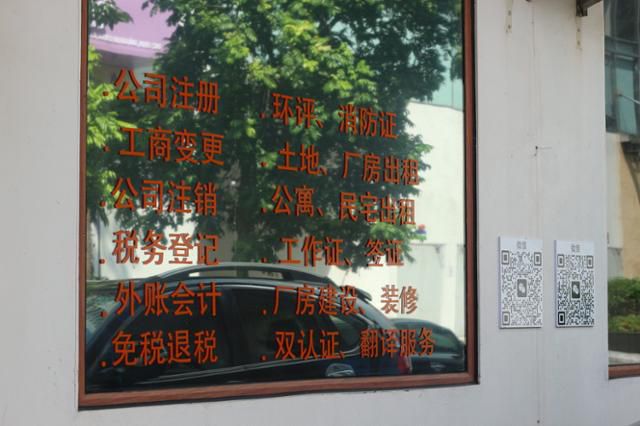 .公司注册
.工商变更
.公司注销
.税务登记
.外账会计
.免税退税
.环评、消防证
.土地、厂房出租
.公寓、民宅出租
.工作证、签证
.厂房建设、装修
.双认证、翻译服务